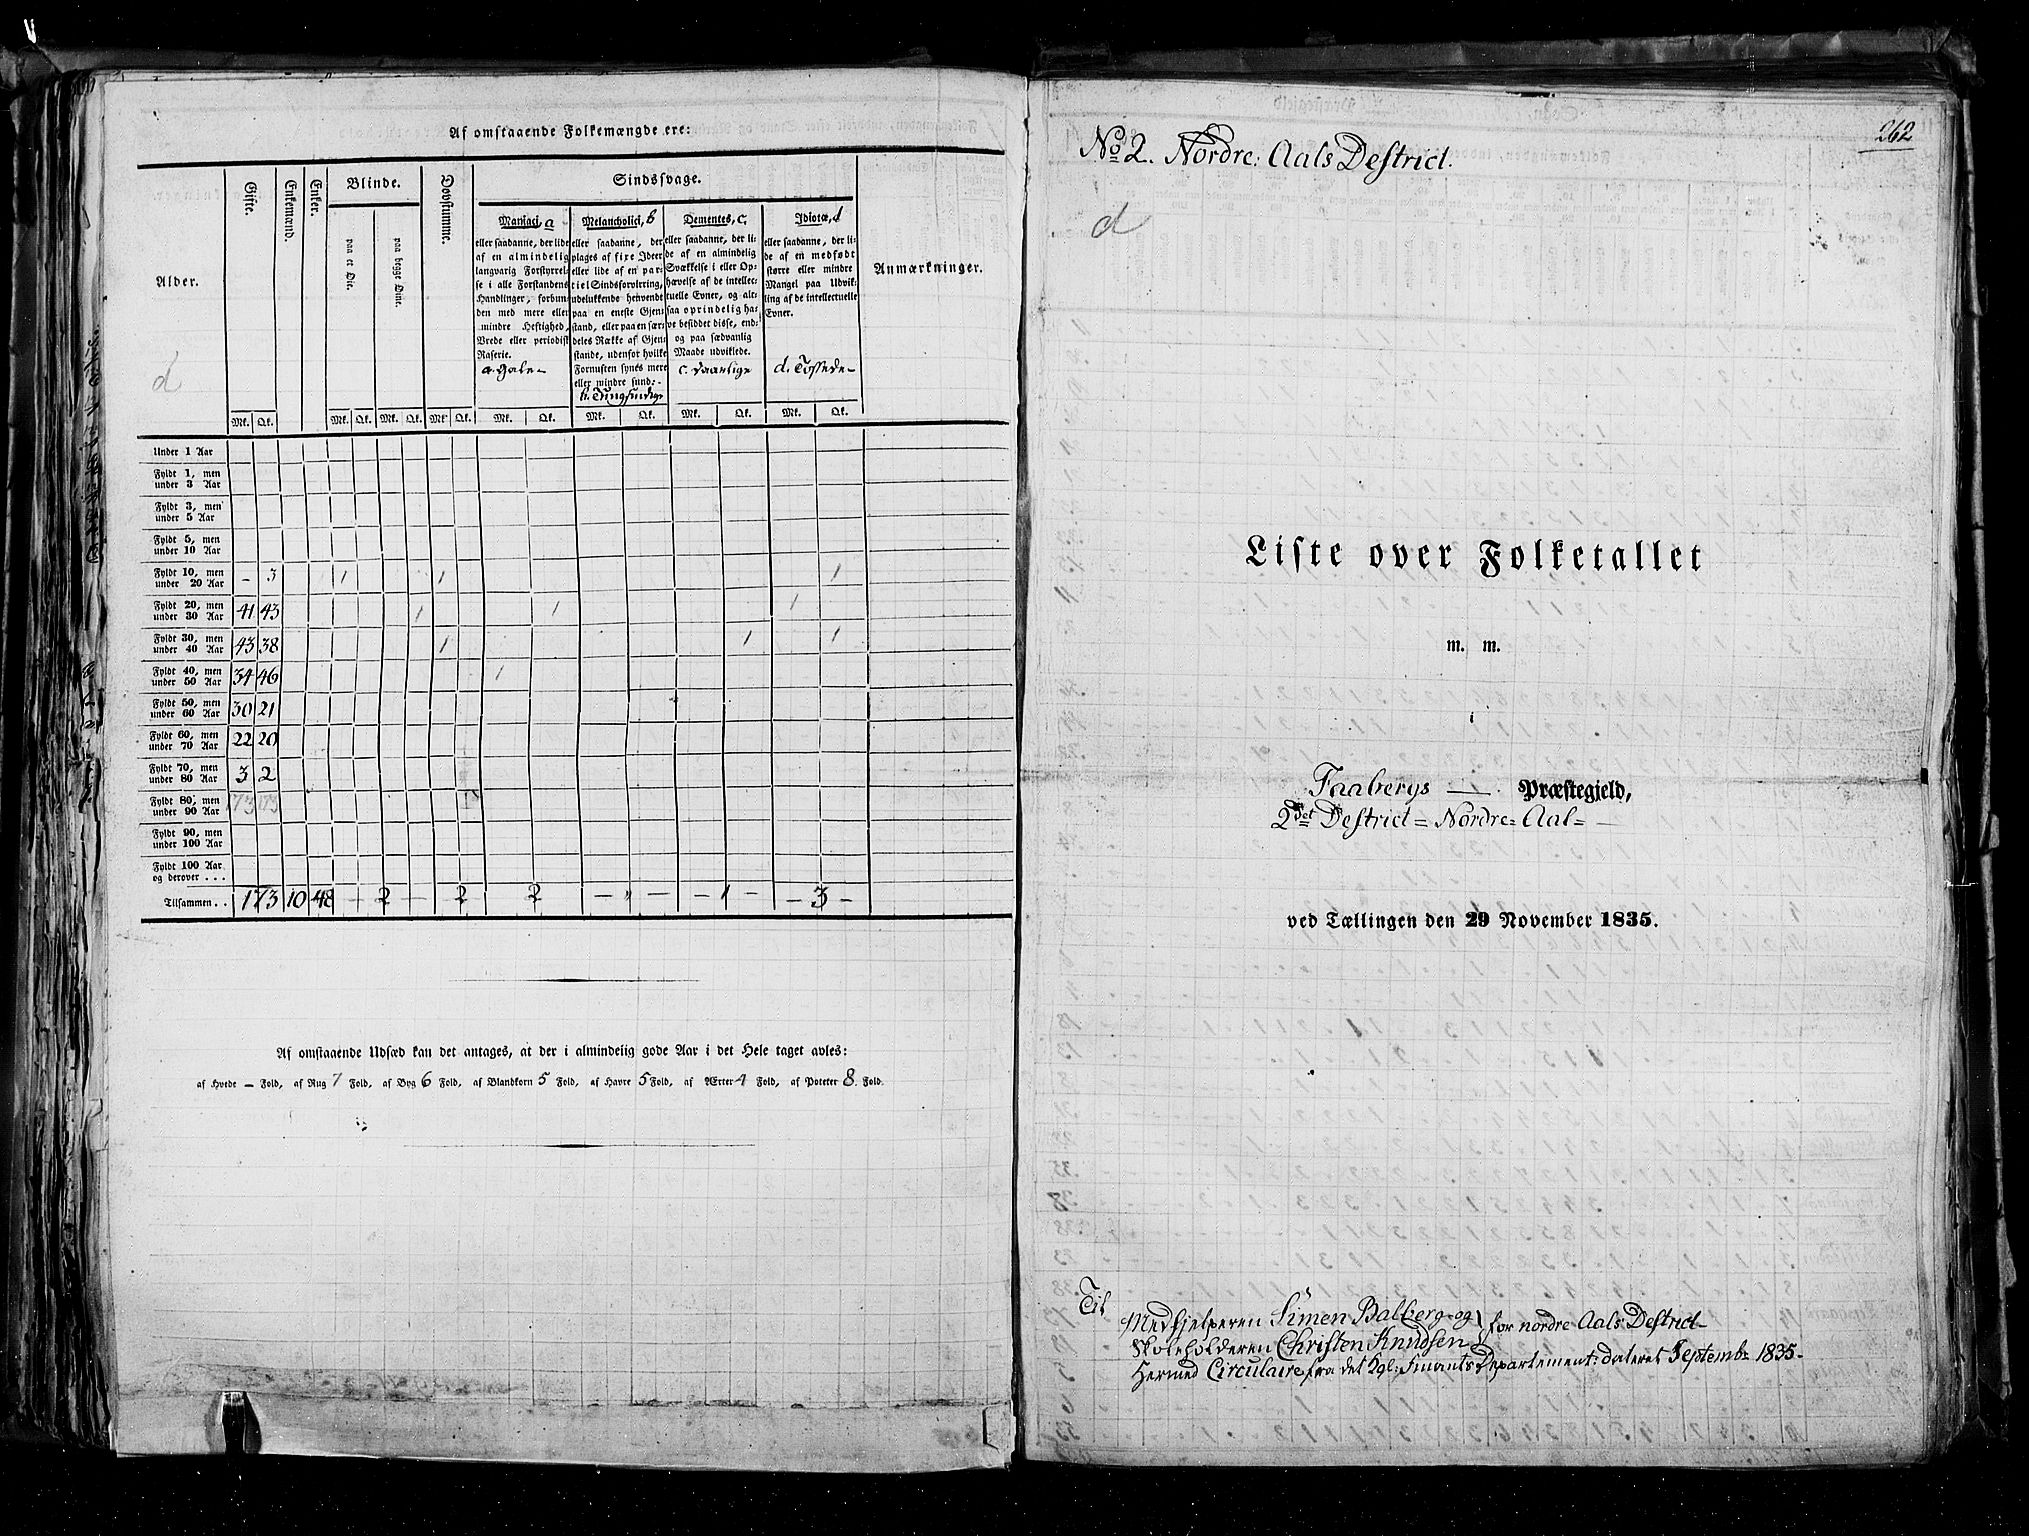 Af omstaaende Folkemængde ere:
Alder. Gifte. Enkemænd. Enker. Blinde. Dovstumme. Sindssvage. Anmærkninger.
paa et Oie. paa begge Oine.
Maniaci, a
eller saadanne, der lide
af en almindelig
langvarig Forstyrrel-
se i alle Forstandens
Handlinger, forbun-
den med mere eller
mindre Heftighed,
Vrede eller periodisk
Raserie.
a. Gale-
Melancholici, b
eller saadanne, der
plages af fixe Ideer
eller lide af en par-
tiel Sindsforvirring,
udelukkende henvendt
paa en eneste Gjen-
stand, eller paa en sær-
deles Række af Gjen-
stande, udenfor hvilke
Fornuften synes mere
eller mindre sund:-
b. Tungsindige
Dementes, c,
eller saadanne, der li-
de af en almindelig
Svækkelse i eller Op-
hævelse af de intellec-
tuelle Evner, og alt-
saa oprindelig ha-
ve besiddet disse, end-
og paa sædvanlig
Maade udviklede.
c. Daarlige
Idiotæ, d
eller saadanne, der li-
de af en medfødt
større eller mindre
Mangel paa Udvik-
ling af de intellectuelle
Evner.
d. Tossede-
d
Mk. Qk. Mk. Qk. Mk. Qk. Mk. Qk. Mk. Qk. Mk. Qk. Mk. Qk. Mk. Qk.
Under 1 Aar
Fyldt 1, men
under 3 Aar
Fyldt 3, men
under 5 Aar
Fyldt 5, men
under 10 Aar
Fyldt 10, men
under 20 Aar - 3 1 1 1
Fyldt 20, men
under 30 Aar 41 43 1 1 1
Fyldt 30, men
under 40 Aar 43 38 1 1 1
Fyldt 40, men
under 50 Aar 34 46 1
Fyldt 50, men
under 60 Aar 30 21
Fyldt 60, men
under 70 Aar 22 20
Fyldt 70, men
under 80 Aar 3 2
Fyldt 80, men
under 90 Aar 173 173
Fyldt 90, men
under 100 Aar
Fyldt 100 Aar
og derover . . .
Tilsammen . . 173 10 48 - 2 - 2 2 - " - - 1 - - 3 -
Af omstaaende Udsæd kan det antages, at der i almindelig gode Aar i det Hele taget avles:
af Hvede - Fold, af Rug 7 Fold, af Byg 6 Fold, af Blandkorn 5 Fold, af Havre 5 Fold, af Ærter 4 Fold, af Poteter 8. Fold.
262
No 2. Nordre: Aals Destrict.
d
Liste over Folketallet
m. m.
i
Faabergs — Præstegjeld,
2det Destrict = Nordre= Aal= —
ved Tællingen den 29 November 1835.
Til
Medhjelperen Simen Balberg og } for nordre Aals Destrict-
Skoleholderen Christen Knudsen
Hermed Circulaire fra det Kgl: Finants Departement: dateret Septembr 1835-